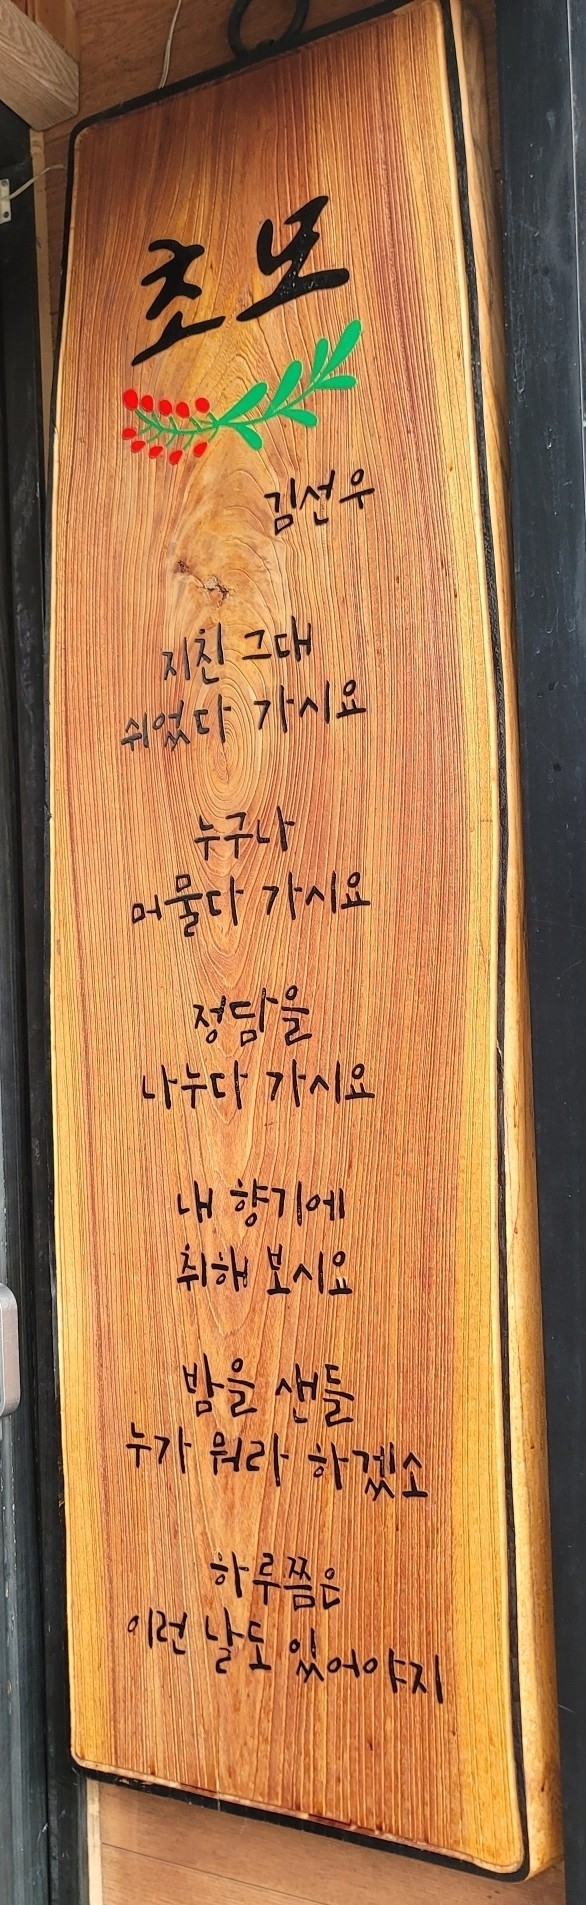 초모
김선우
지친 그대
쉬었다 가시요
누구나
머물다 가시요
정담을
나누다 가시요
내 향기에
취해 보시요
밤을 샌들
누가 뭐라 하겠소
하루쯤은
이런 날도 있어야지